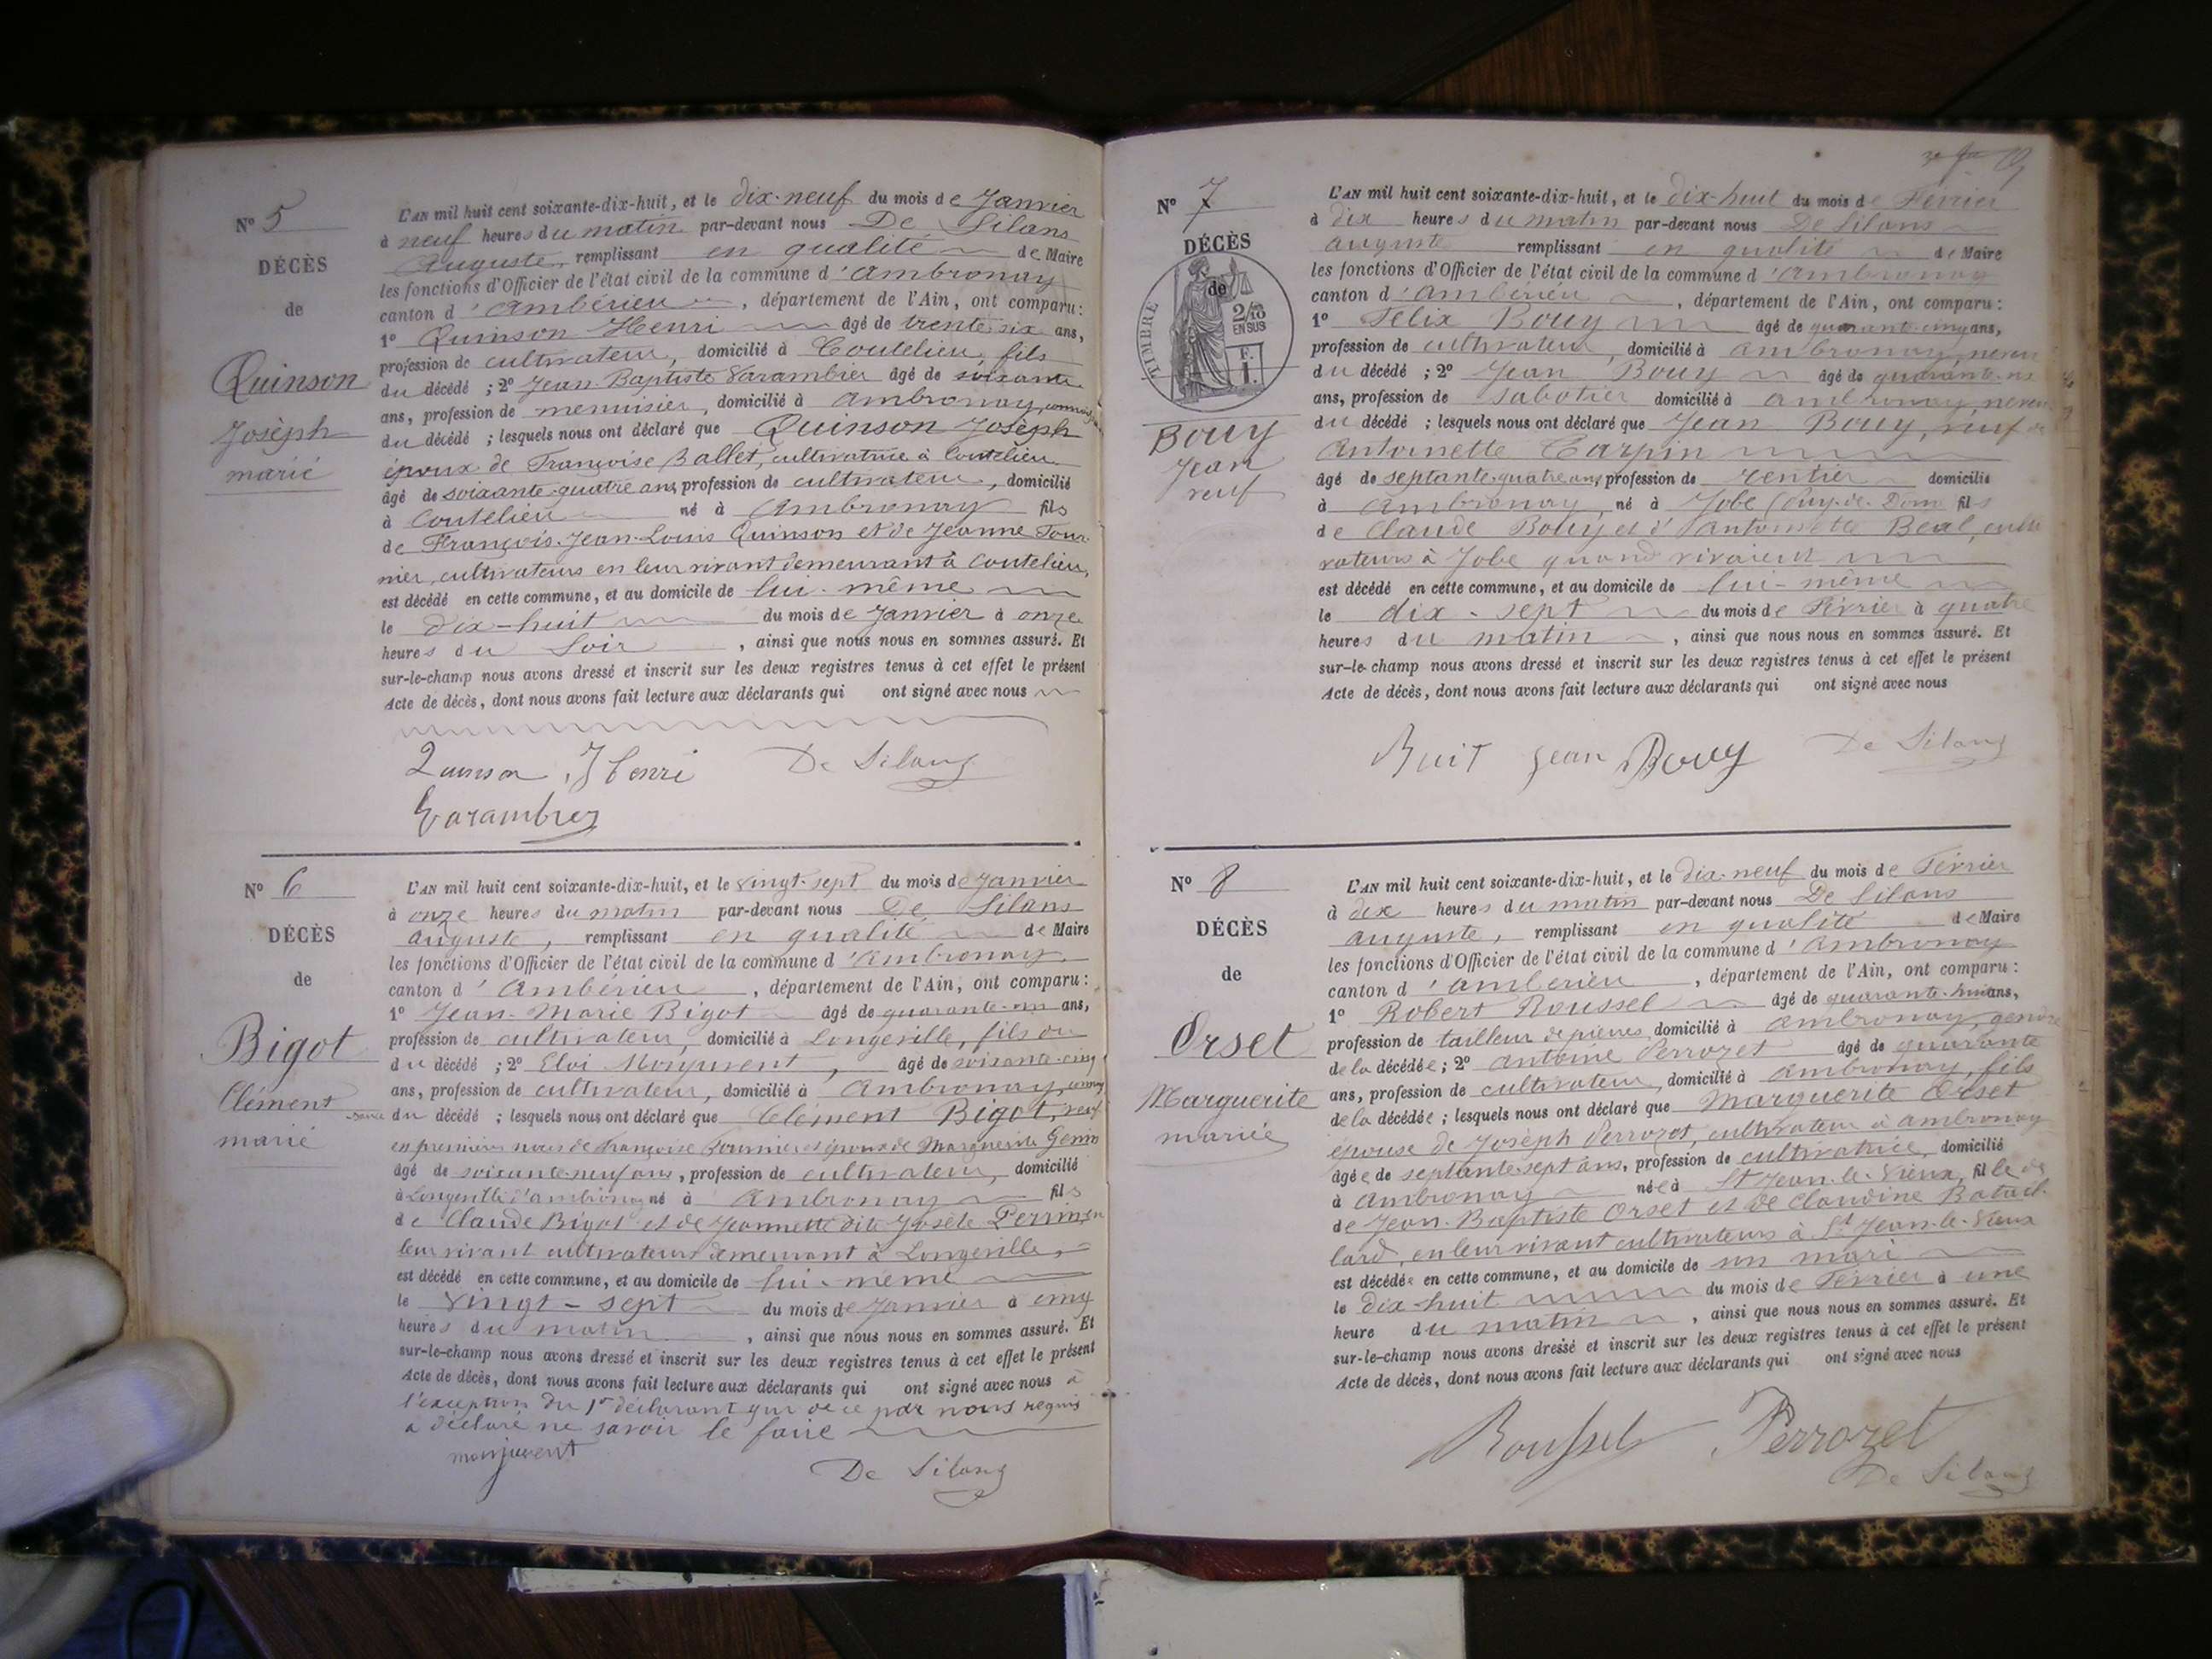 N° 5
DÉCÈS
de
Quinson
Joseph
marié
L'AN mil huit cent soixante-dix-huit, et le dix-neuf du mois de Janvier
à neuf heures du matin par-devant nous De Silans
Auguste, remplissant en qualité de Maire
les fonctions d'Officier de l'état civil de la commune d'Ambronay
canton d'Ambérieu, département de l'Ain, ont comparu:
1° Quinson Henri âgé de trente six ans,
profession de cultivateur, domicilié à Coutelieu, fils
du décédé ; 2° Jean-Baptiste Varambier âgé de soixante
ans, profession de menuisier, domicilié à Ambronay,
du décédé ; lesquels nous ont déclaré que Quinson Joseph
époux de Françoise Ballet, cultivatrice à Coutelieu
âgé de soixante-quatre ans, profession de cultivateur, domicilié
à Coutelieu né à Ambronay fils
de François-Jean-Louis Quinson et de Jeanne Four-
nier, cultivateurs en leur vivant demeurant à Coutelieu,
est décédé en cette commune, et au domicile de lui-même
le dix-huit du mois de Janvier à onze
heures du soir, ainsi que nous nous en sommes assuré. Et
sur-le-champ nous avons dressé et inscrit sur les deux registres tenus à cet effet le présent
Acte de décès, dont nous avons fait lecture aux déclarants qui ont signé avec nous
Quinson Henri De Silans
Varambier
N° 6
DÉCÈS
de
Bigot
Clément
marié
L'AN mil huit cent soixante-dix-huit, et le vingt-sept du mois de Janvier
à onze heures du matin par-devant nous De Silans
Auguste, remplissant en qualité de Maire
les fonctions d'Officier de l'état civil de la commune d'Ambronay
canton d'Ambérieu, département de l'Ain, ont comparu:
1° Jean-Marie Bigot âgé de quarante-un ans,
profession de cultivateur, domicilié à Longeville, fils du
du décédé ; 2° Eloi Monjuvent, âgé de soixante-cinq
ans, profession de cultivateur, domicilié à Ambronay,
du décédé ; lesquels nous ont déclaré que Clément Bigot, veuf
en premières noces de Françoise Fournier et époux de Marguerite Genin
âgé de soixante-neuf ans, profession de cultivateur, domicilié
à Longeville d'Ambronay né à Ambronay fils
de Claude Bigot et de Jeannette dite Josète Perrin, en
leur vivant cultivateurs demeurant à Longeville,
est décédé en cette commune, et au domicile de lui-même
le vingt-sept du mois de Janvier à cinq
heures du matin, ainsi que nous nous en sommes assuré. Et
sur-le-champ nous avons dressé et inscrit sur les deux registres tenus à cet effet le présent
Acte de décès, dont nous avons fait lecture aux déclarants qui ont signé avec nous à
l'exception du 1er déclarant qui de ce par nous requis
a déclaré ne savoir le faire
monjuvent
De Silans
N° 7
DÉCÈS
de
TIMBRE
2/10
EN SUS
Bouy
Jean
veuf
L'AN mil huit cent soixante-dix-huit, et le dix-huit du mois de Février
à dix heures du matin par-devant nous De Silans
Auguste remplissant en qualité de Maire
les fonctions d'Officier de l'état civil de la commune d'Ambronay
canton d'Ambérieu, département de l'Ain, ont comparu:
1° Félix Bouy âgé de quarante-cinq ans,
profession de cultivateur, domicilié à Ambronay, neveu
du décédé ; 2° Jean Bouy âgé de quarante-
ans, profession de sabotier domicilié à Ambronay, neveu
du décédé ; lesquels nous ont déclaré que Jean Bouy, veuf de
Antoinette Carpin
âgé de septante-quatre ans, profession de rentier domicilié
à Ambronay, né à Jobe (Puy-de-Dôm fils
de Claude Bouy et d'Antoinette Béal, culti-
vateurs à Jobe quand vivaient
est décédé en cette commune, et au domicile de lui-même
le dix-sept du mois de Février à quatre
heures du matin, ainsi que nous nous en sommes assuré. Et
sur-le-champ nous avons dressé et inscrit sur les deux registres tenus à cet effet le présent
Acte de décès, dont nous avons fait lecture aux déclarants qui ont signé avec nous
Jean Bouy De Silans
N° 8
DÉCÈS
de
Orset
Marguerite
mariée
L'AN mil huit cent soixante-dix-huit, et le dix-neuf du mois de Février
à dix heures du matin par-devant nous De Silans
Auguste, remplissant en qualité de Maire
les fonctions d'Officier de l'état civil de la commune d'Ambronay
canton d'Ambérieu, département de l'Ain, ont comparu:
1° Robert Roussel âgé de quarante-huit ans,
profession de tailleur de pierres, domicilié à Ambronay, gendre
de la décédée ; 2° Antoine Perrozet âgé de quarante
ans, profession de cultivateur, domicilié à Ambronay, fils
de la décédée ; lesquels nous ont déclaré que Marguerite Orset
épouse de Joseph Perrozet, cultivateur à Ambronay
âgée de septante-sept ans, profession de cultivatrice, domicilié
à Ambronay née à St Jean-le-Vieux, fille de
de Jean-Baptiste Orset et de Claudine Batail-
lard, en leur vivant cultivateurs à St Jean-le-Vieux
est décédée en cette commune, et au domicile de son mari
le dix-huit du mois de Février à une
heure du matin, ainsi que nous nous en sommes assuré. Et
sur-le-champ nous avons dressé et inscrit sur les deux registres tenus à cet effet le présent
Acte de décès, dont nous avons fait lecture aux déclarants qui ont signé avec nous
Roussel Perrozet
De Silans